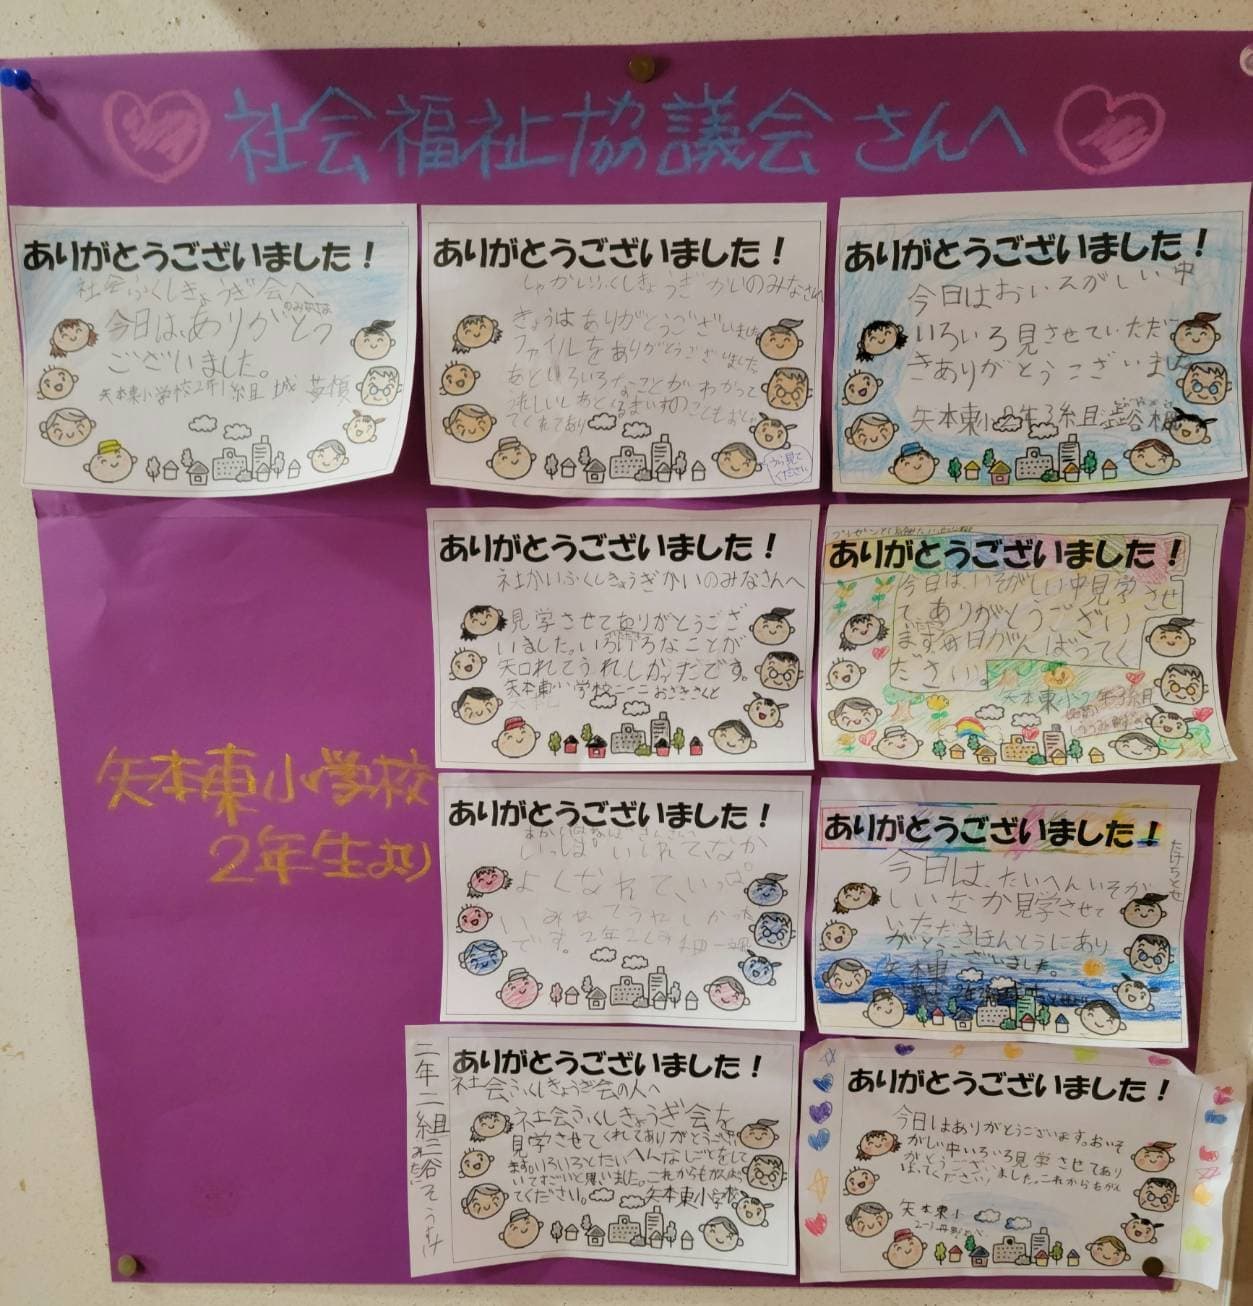 社会福祉協議会さんへ
ありがとうございました!
社会ふくしきょうぎ会へ
のみなさま
今日は、ありがとう
ございました。
矢本東小学校2年1組
ありがとうございました!
しゃかいふくしきょうぎかいのみなさんへ
きょうはありがとうございました
ファイルをありがとうございました
あといろいろなことがわかって
うれしいしあとくるまいすのこともおしえ
てくれてあり
うら見て
ください
ありがとうございました!
今日はおいそがしい中
いろいろ見させていただ
きありがとうございました
矢本東小2年3組澁谷
ありがとうございました!
社かいふくしきょうぎかいのみなさんへ
見学させてありがとうござ
いました。いろいろなことが
知れてうれしかったです。
矢本東小学校二ー二おざきさんと
ありがとうございました!
今日は、いそがしい中見学させ
てありがとうござい
ます毎日がんばってく
ださい。
矢本東小2年3組
矢本東小学校
2年生より
ありがとうございました!
よくなれて、いっぱ
いみせてうれしかった
です。2年2くみ
ありがとうございました!
今日は、たいへんいそが
しいなか見学させて
いただきほんとうにあり
がとうございました。
矢本東
ありがとうございました!
社会ふくしきょうぎ会の人へ
社会ふくしきょうぎ会を
見学させてくれてありがとうござい
ます。いろいろとたいへんなしごとをして
いてすごいと思いました。これからもがんばっ
てください。 矢本東小学校
二年二組三谷そうすけ
ありがとうございました!
今日はありがとうございます。おいそ
がしい中いろいろ見学させてあり
がとうございました。これからもがん
ばってください!
矢本東小
2-1